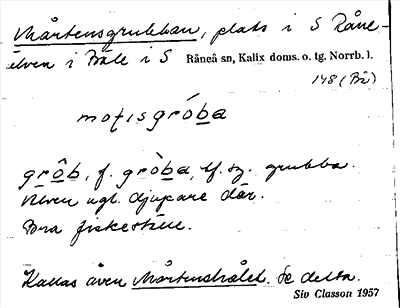 Mårtensgrubban, plats i S Råne-
älven i Böle i S Råneå sn, Kalix doms. o. tg. Norrb. l.
148 (Bö)
grôb, f. gròba, bf. sg. grubba.
Älven ngt djupare där.
Bra fiskeställe.
Kallas även Mårtenshålet. Se detta.
Siv Classon 1957